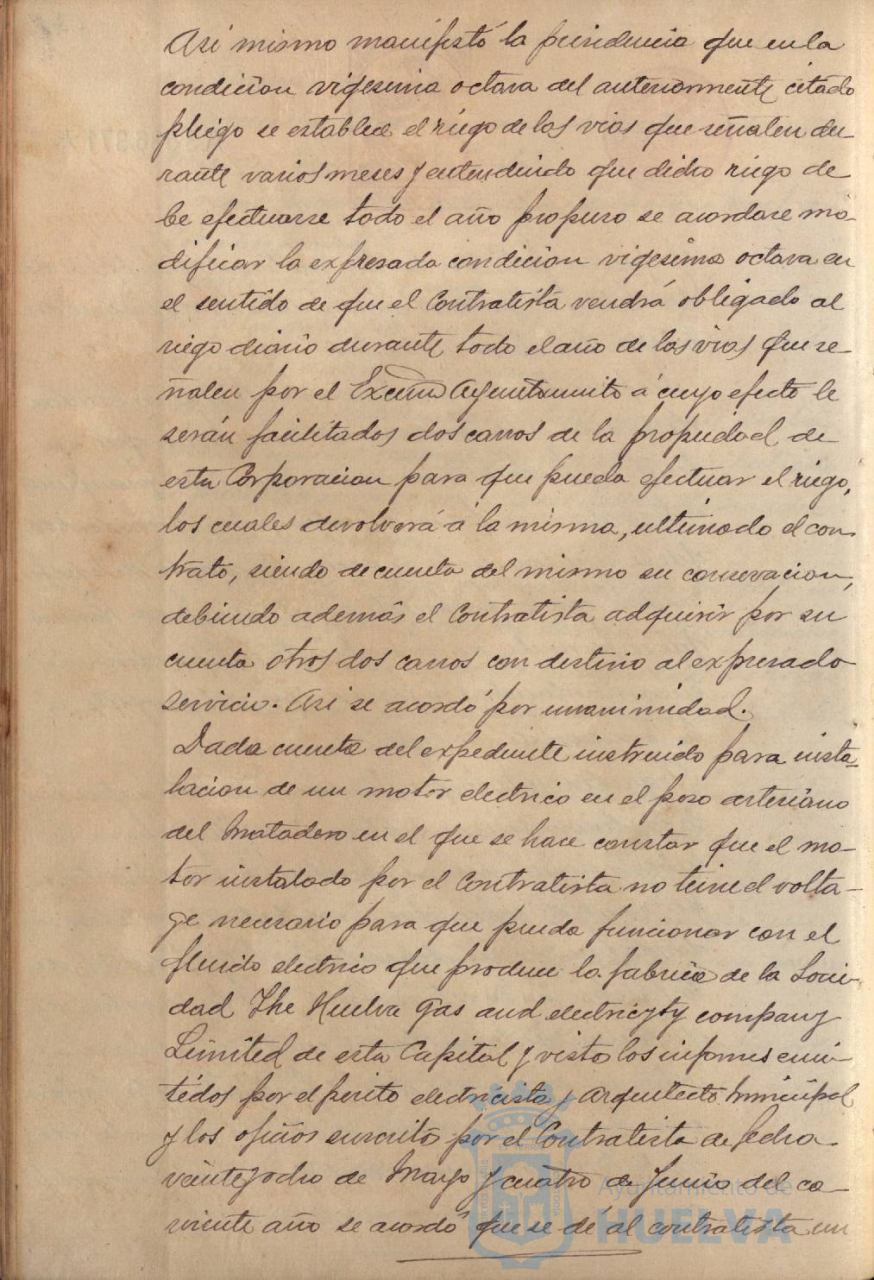 Asi mismo manifestó la presidencia que en la
condicion vigesima octava del anteriormente citado
pliego se establece el riego de las vias que señalen du-
rante varios meses y entendiendo que dicho riego de
be efectuarse todo el año propuso se acordase mo-
dificar la expresada condicion vigesima octava en
el sentido de que el Contratista vendrá obligado al
riego diario durante todo el año de las vias que se-
ñalen por el Excmo Ayuntamiento á cuyo efecto le
serán facilitados dos carros de la propiedad de
esta Corporacion para que pueda efectuar el riego,
los cuales devolverá á la misma, ultimado el con-
trato, siendo de cuenta del mismo su conservacion,
debiendo además el Contratista adquirir por su
cuenta otros dos carros con destino al expresado
servicio. Asi se acordó por unanimidad.
Dada cuenta del expediente instruido para insta-
lacion de un motor electrico en el pozo artesiano
del Matadero en el que se hace constar que el mo-
tor instalado por el Contratista no tiene el volta-
ge necesario para que pueda funcionar con el
fluido electrico que produce la fabrica de la Socie-
dad The Huelva Gas and electricyty company
Limited de esta Capital y visto los informes emi-
tidos por el perito electricista y Arquitecto Municipal
y los oficios suscrito por el Contratista de fecha
veinte y ocho de Mayo y cuatro de Junio del co-
rriente año se acordó que se dé al contratista un
Ayuntamiento de
HUELVA